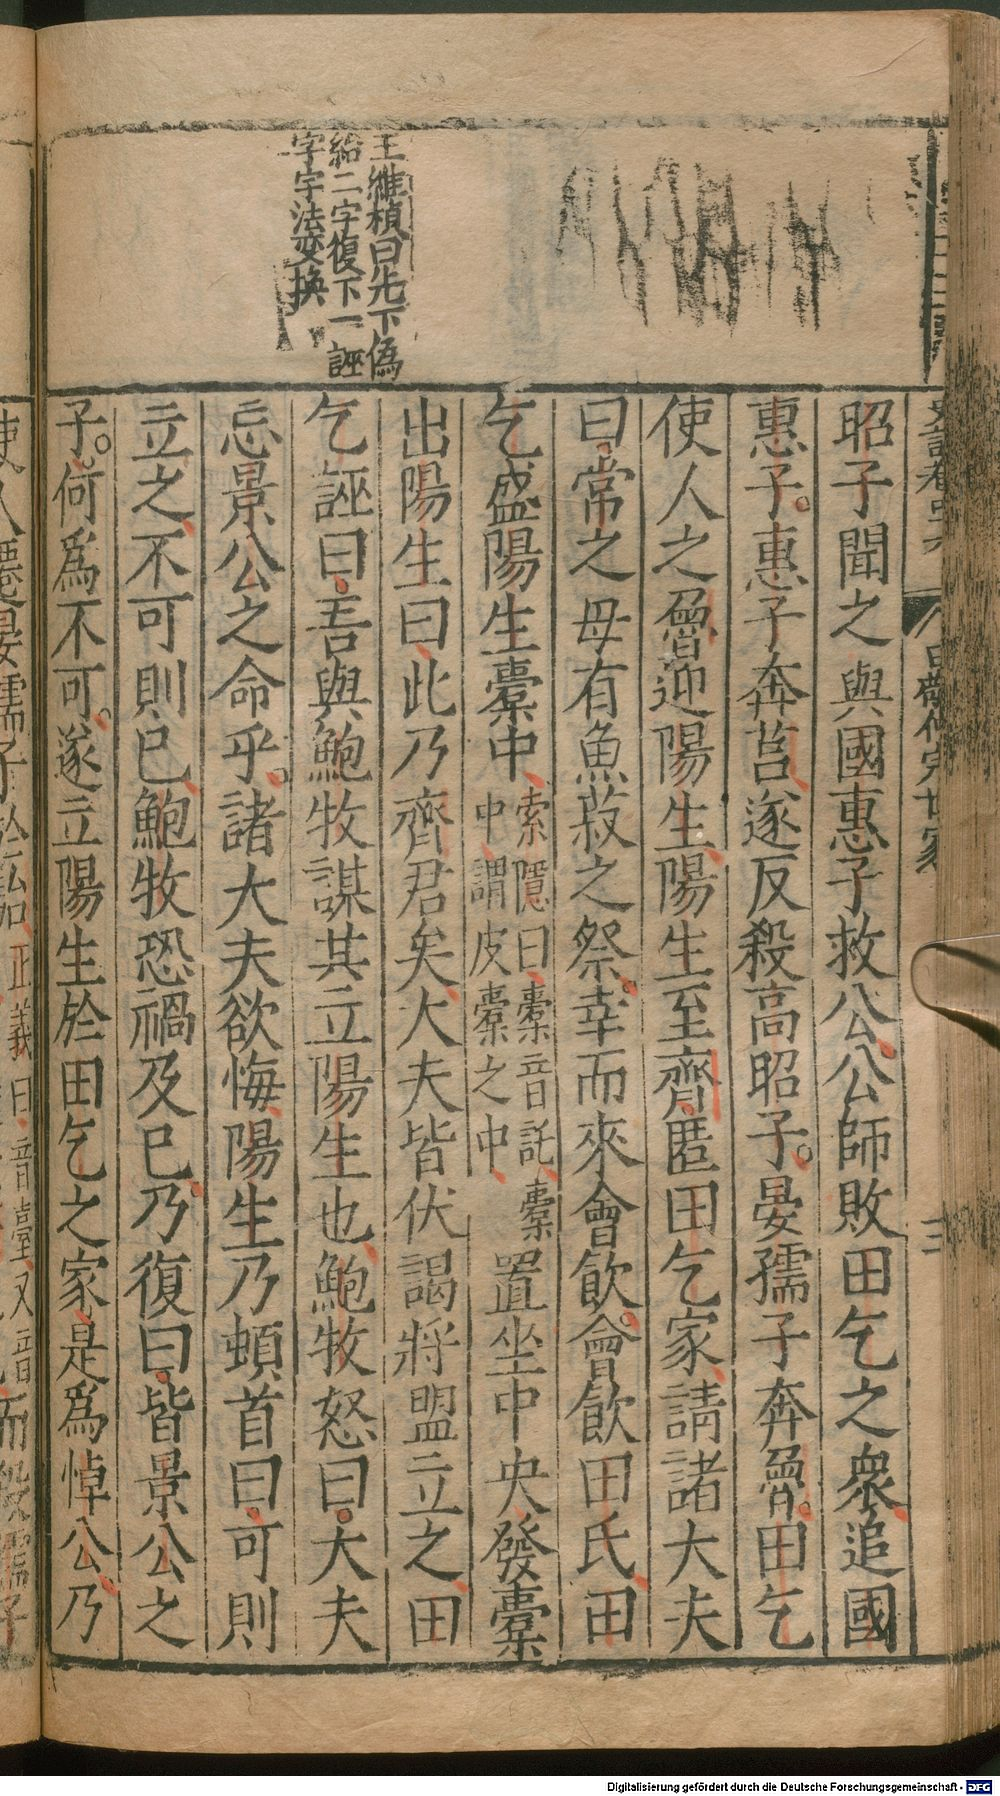 王維楨曰先下偽
紿二字復下一誣
字字法変換
昭子聞之與國惠子救公公師敗田乞之衆追國
惠子惠子奔莒遂反殺高昭子晏孺子奔魯田乞
使人之魯迎陽生陽生至齊匿田乞家請諸大夫
曰常之母有魚菽之祭幸而來會飲會飲田氏田
乞盛陽生橐中
索隱曰橐音託橐
中謂皮橐之中
置坐中央發橐
出陽生曰此乃齊君矣大夫皆伏謁將盟立之田
乞誣曰吾與鮑牧謀其立陽生也鮑牧怒曰大夫
忘景公之命乎諸大夫欲悔陽生乃頓首曰可則
立之不可則已鮑牧恐禍及已乃復曰皆景公之
子何爲不可遂立陽生於田乞之家是爲悼公乃
三
Digitalisierung gefördert durch die Deutsche Forschungsgemeinschaft - DFG